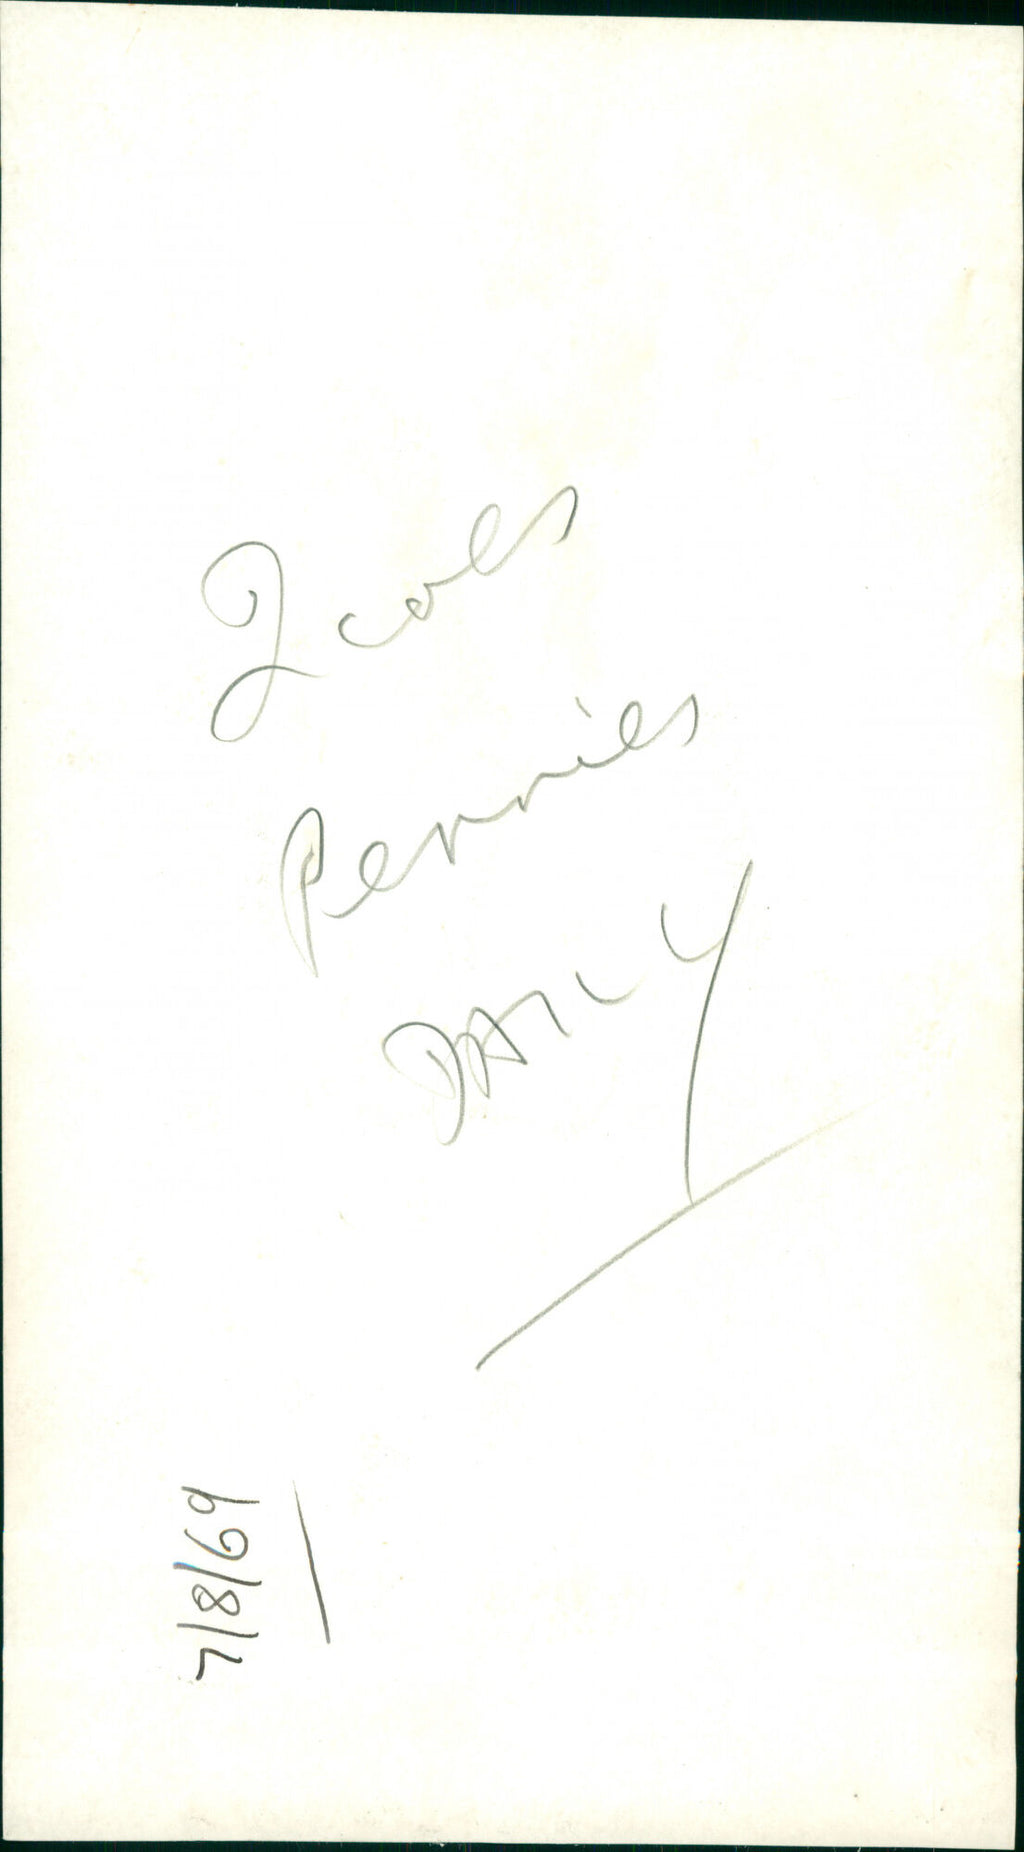 2 cols
Pennies
DAILY
7/8/69